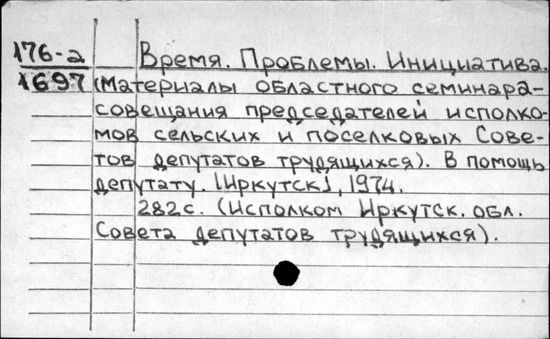 176-2 Время. Проблемы. Инициатива.
1697 (Материалы областного семинара-
совещания председателей исполко-
мов сельских и поселковых Сове-
тов депутатов трудящихся). В помощь
депутату. [Иркутск], 1974.
282с. (Исполком Иркутск. обл.
Совета депутатов трудящихся).